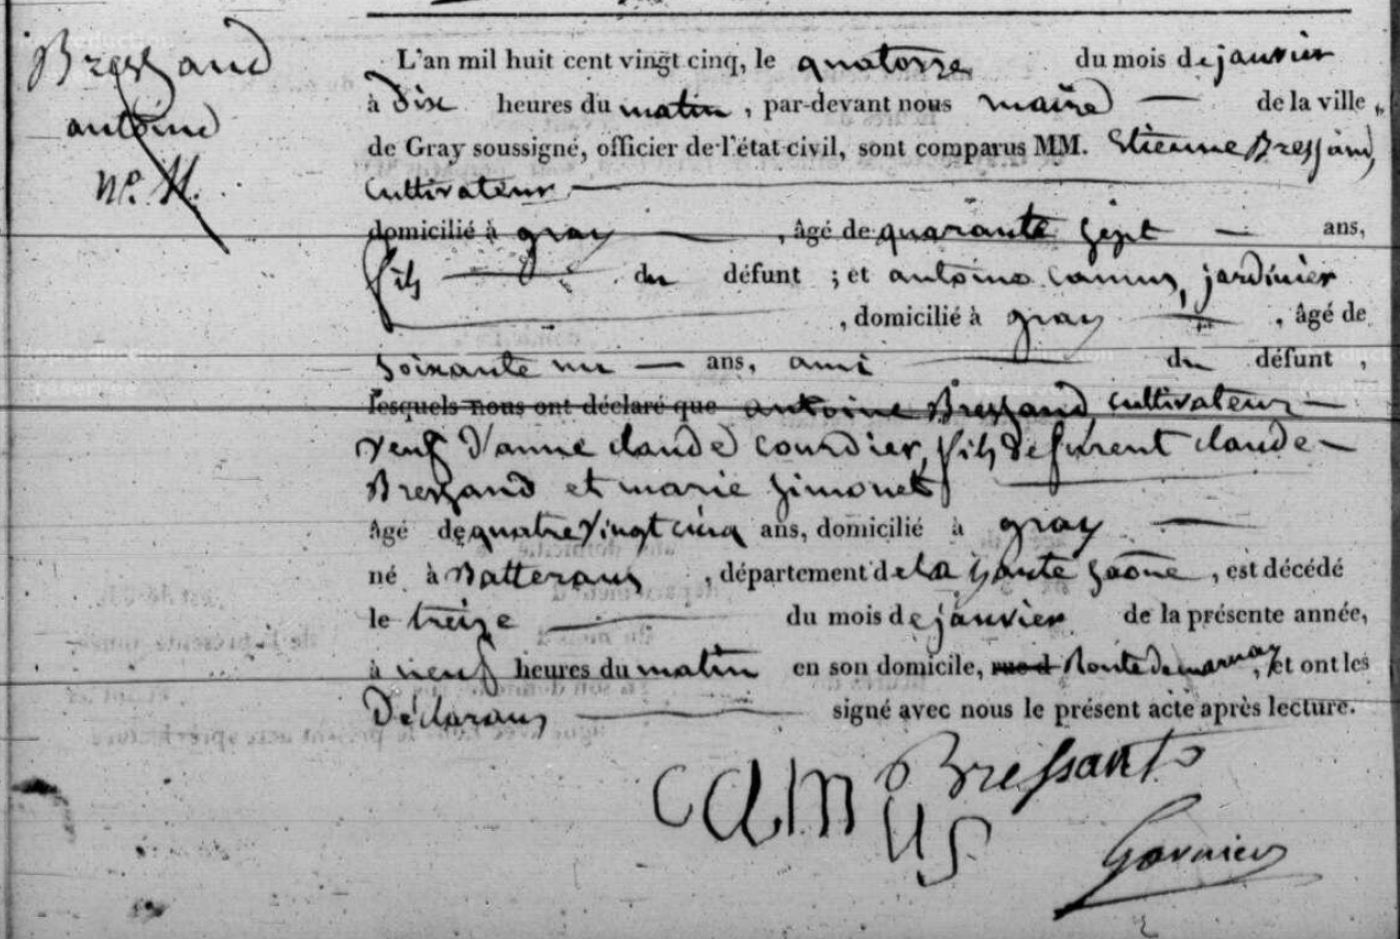 Bressand
antoine
n.° 11.
L'an mil huit cent vingt cinq, le quatorze du mois de janvier
à dix heures du matin, par-devant nous maire — de la ville
de Gray soussigné, officier de l'état civil, sont comparus MM. Etienne Bressand,
Cultivateur —
domicilié à gray —, âgé de quarante sept — ans,
fils — du défunt ; et antoine Camus, jardinier
, domicilié à gray —, âgé de
soixante un — ans, ami — du défunt,
lesquels nous ont déclaré que antoine Bressand cultivateur —
veuf d'anne claude courdier, fils de furent claude —
Bressand et marie Simonet —
âgé de quatre vingt cinq ans, domicilié à gray —
né à Batterans, département de la haute Saône, est décédé
le treize — du mois de janvier de la présente année,
à neuf heures du matin en son domicile, rue d Route de marnay, et ont les
Déclarans — signé avec nous le présent acte après lecture.
camus Bressant
Garnier